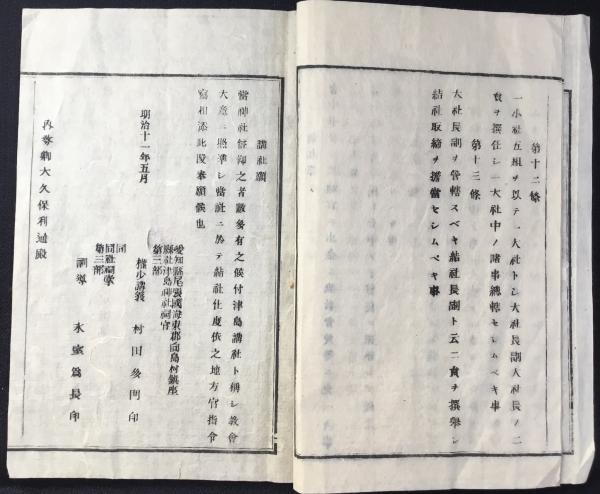 第十二條
一小社五組ヲ以テ一大社トシ大社長副大社長ノ二
員ヲ撰任シ一大社中ノ諸事總轄セシムベキ事
第十三條
大社長副ヲ管轄スベキ結社長副ト云二員ヲ撰擧シ
結社取締ヲ擔當セシムベキ事
講社願
當神社信仰之者數多有之候付津島講社ト稱シ教會
大意ニ照準シ當社ニ於テ結社仕度依之地方官指令
寫相添此段奉願候也
愛知縣尾張國海東郡向島村鎭座
縣社津島神社祠官
第三部
明治十一年五月
權少講義 村田多門印
同
同社祠掌
第三部
訓導 氷室爲長印
內務卿大久保利通殿